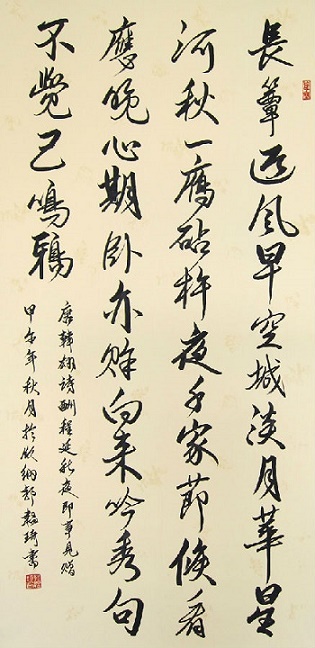 長簟迎风早空城淡月華星
河秋一雁砧杵夜千家節候看
應晚心期卧亦賒向来吟秀句
不覺已鳴鴉
唐韓翃詩酬程延秋夜即事見贈
甲午年秋月於
書